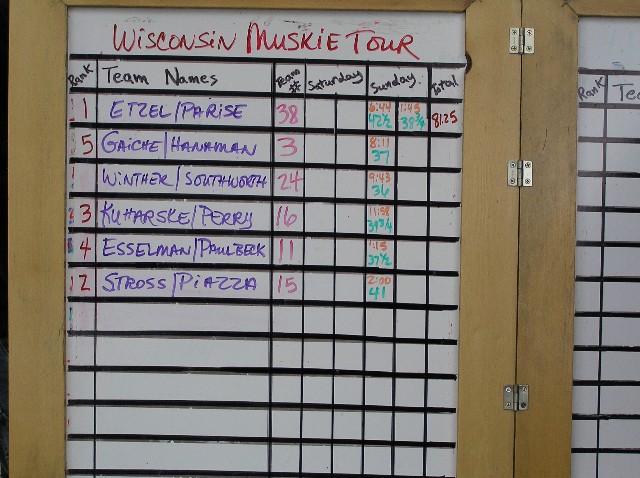 Wisconsin Muskie Tour
Rank Team Names Team # Saturday Sunday Total Rank
1 Etzel/Parise 38 6:44 1:45 81.25
42½ 38¾
5 Gaiche/Hanaman 3 8:11
37
Winther/Southworth 24 9:43
36
3 Kuharske/Perry 16 11:58
39¾
4 Esselman/Paulbeck 11 1:15
37½
2 Stross/Piazza 15 2:00
41